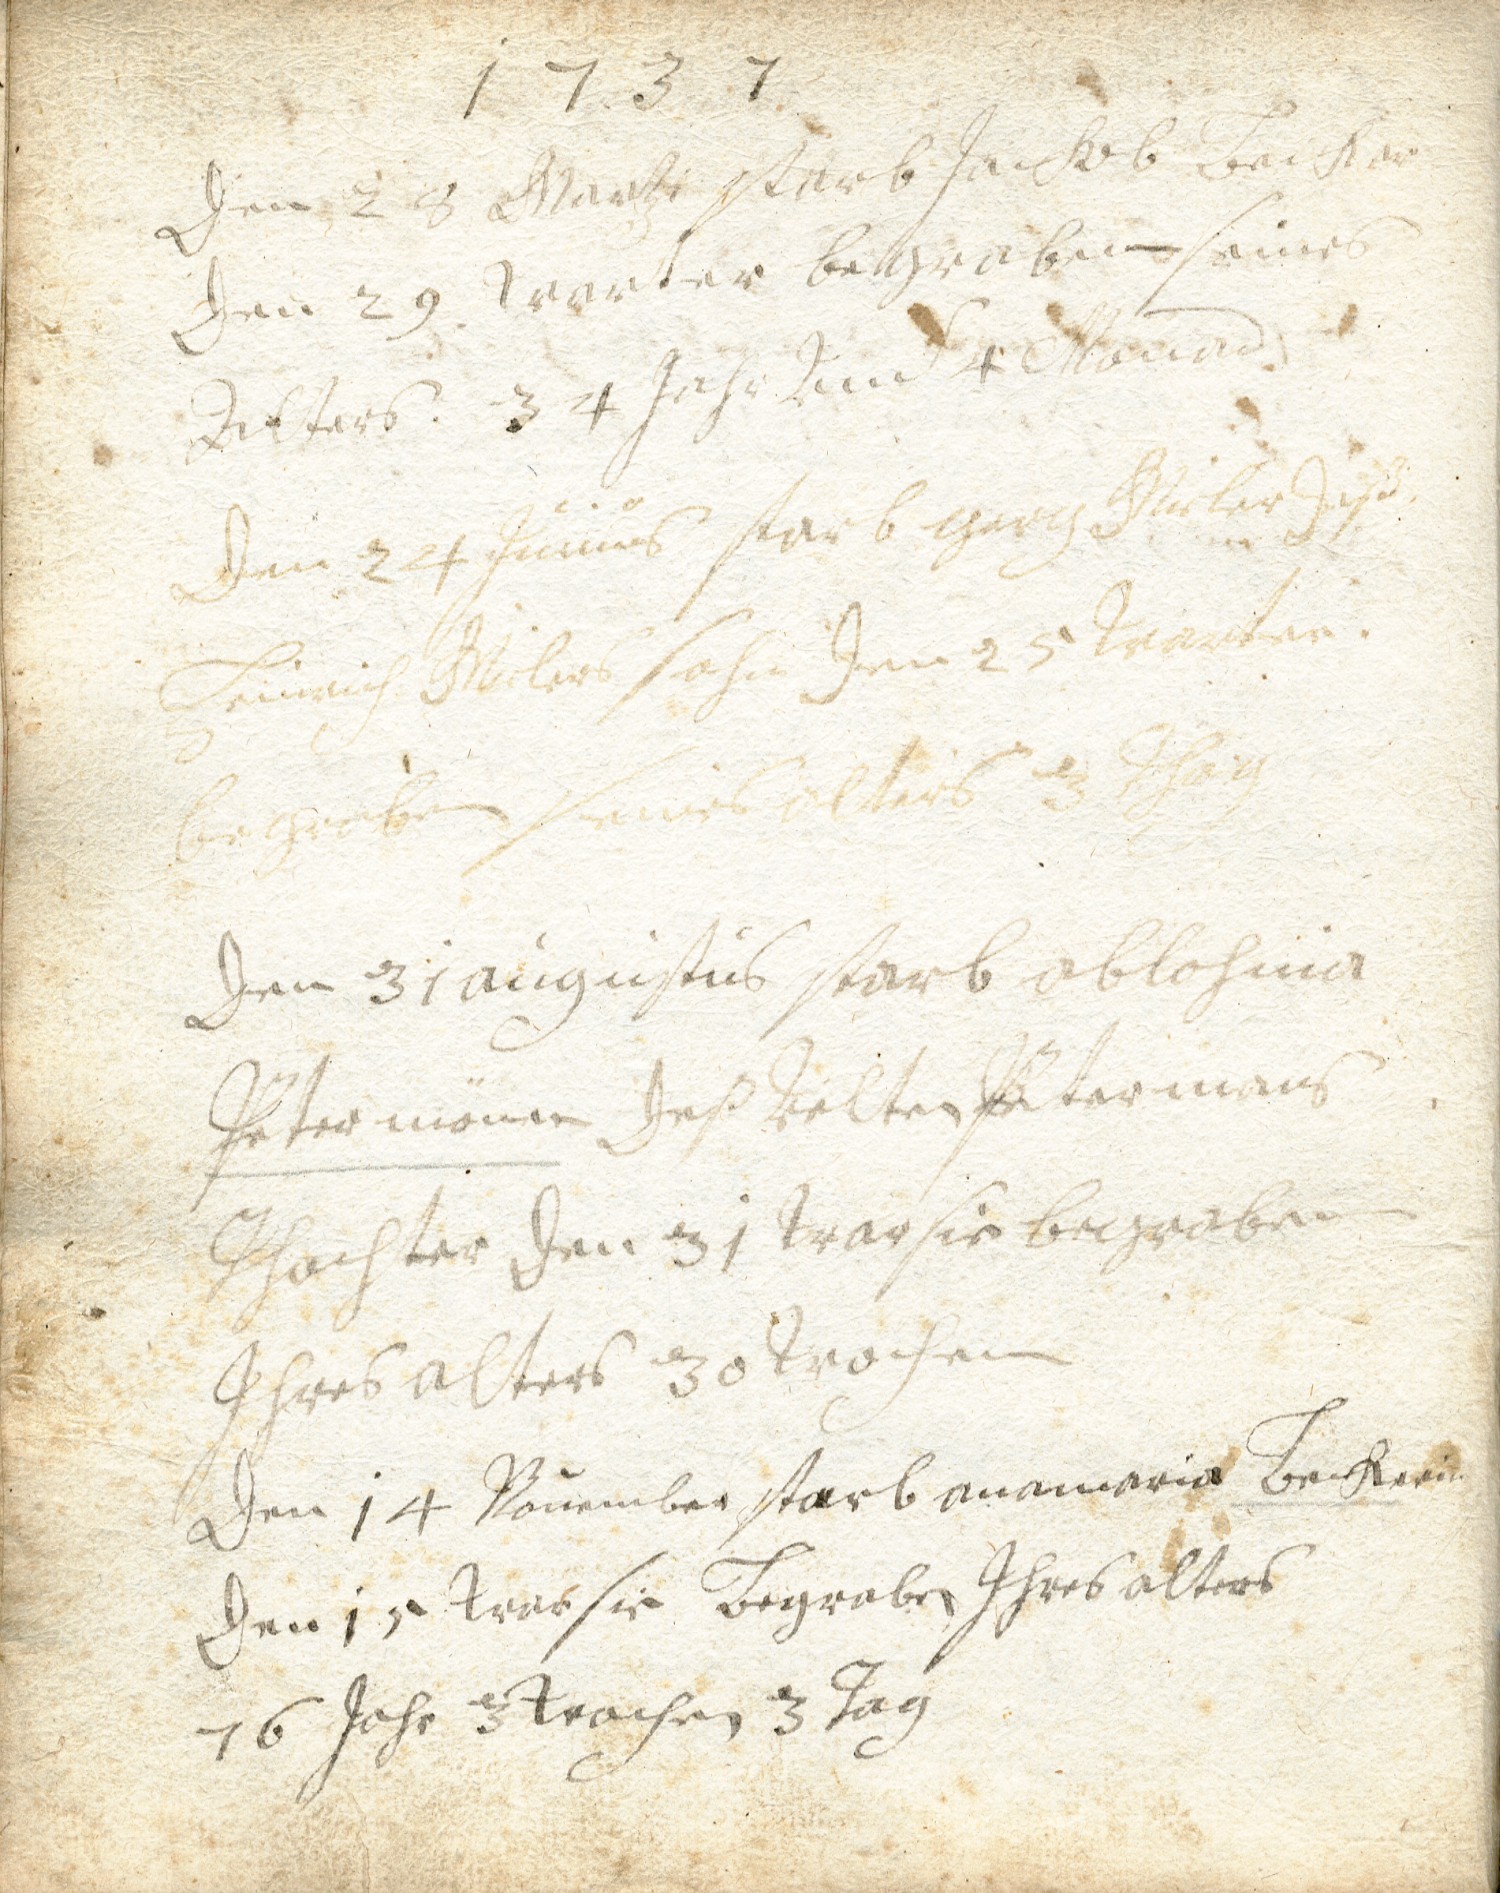 1737
Den 28 Martzi starb Jackob Becker
Den 29. warter begraben seines
Alters. 34 Jahr und 4 Monad
Den 24 Junius starb gerg Miler Deß
Heinrich Milers sohn Den 25 warter.
begraben seines alters 3 Thag
Den 31 augustus starb ablohnia
Petermänen Deß Velten Petermans
Thochter Den 31 war sie begraben
Ihres alters 30 wochen
Den 14 November starb anamaria Beckerin
Den 15 war sie Begraben Ihres alters
76 Jahr 3 wochen 3 Tag